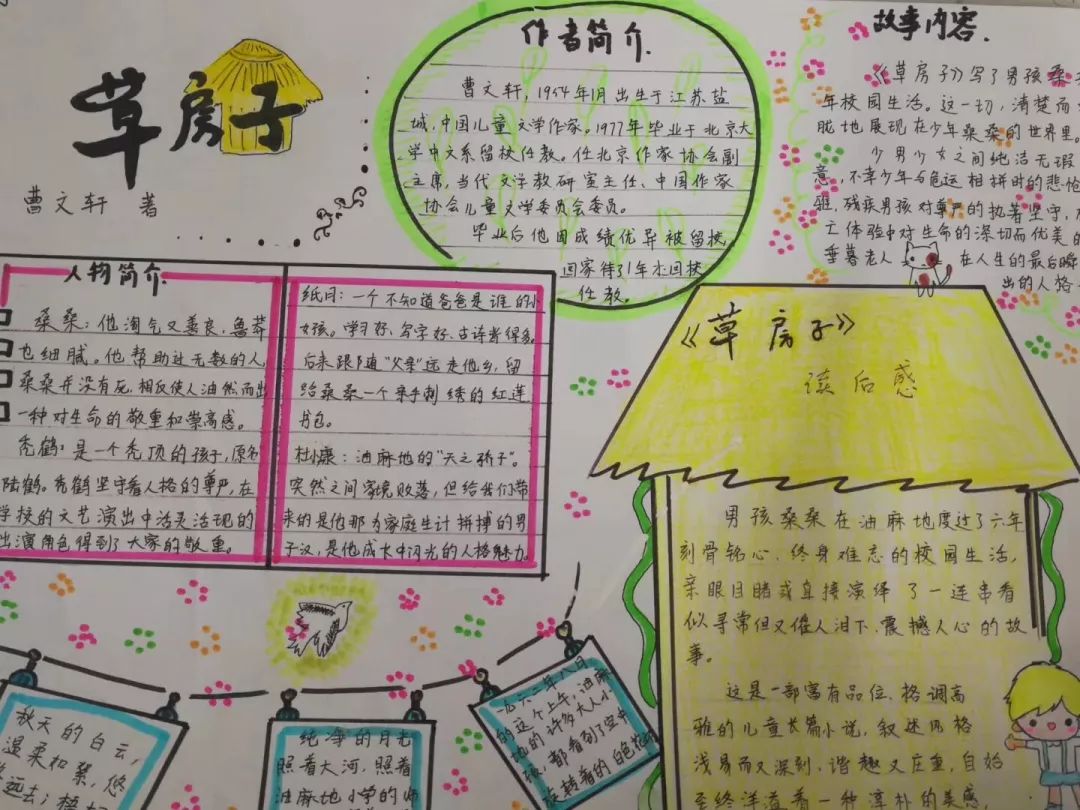 草房子
曹文轩 著
作者简介
曹文轩,1954年1月出生于江苏盐
城,中国儿童文学作家。1977年毕业于北京大
学中文系留校任教。任北京作家协会副
主席,当代文学教研室主任、中国作家
协会儿童文学委员会委员。
毕业后他因成绩优异被留校,
回家待了1年才回校
任教。
故事内容.
《草房子》写了男孩桑
年校园生活。这一切,清楚而
胧地展现在少年桑桑的世界里。
少男少女之间纯洁无瑕
意,不幸少年与厄运相拼时的悲怆
残疾男孩对尊严的执着坚守,
亡体验中对生命的深切而优美的
垂暮老人 在人生的最后瞬
出的人格
人物简介
桑桑:他淘气又善良,鲁莽
也细腻。他帮助过无数的人,
桑桑并没有死,相反使人油然而出
一种对生命的敬重和崇高感。
秃鹤:是一个秃顶的孩子,原名
陆鹤。秃鹤坚守着人格的尊严,在
学校的文艺演出中活灵活现的
出演角色得到了大家的敬重。
纸月:一个不知道爸爸是谁的小
女孩。学习好、写字好、古诗背得多。
后来跟随“父亲”远走他乡,留
给桑桑一个亲手刺绣的红莲
书包。
杜小康:油麻地的“天之骄子”。
突然之间家境败落,但给我们带
来的是他那为家庭生计拼搏的男
子汉,是他成长中闪光的人格魅力
《草房子》
读后感
男孩桑桑在油麻地度过了六年
刻骨铭心、终身难忘的校园生活,
亲眼目睹或直接演绎了一连串看
似寻常但又催人泪下、震撼人心的故
事。
这是一部富有品位、格调高
雅的儿童长篇小说,叙述风格
浅易而又深刻、谐趣又庄重,自始
至终洋溢着一种淳朴的美感
秋天的白云,
温柔如絮,悠
远去;梧桐
纯净的月光
照着大河,照着
油麻地小学的师
一九六二年八月
的这个上午,油麻
地的许多大人小
孩,都看到了空中
旋转着的白色